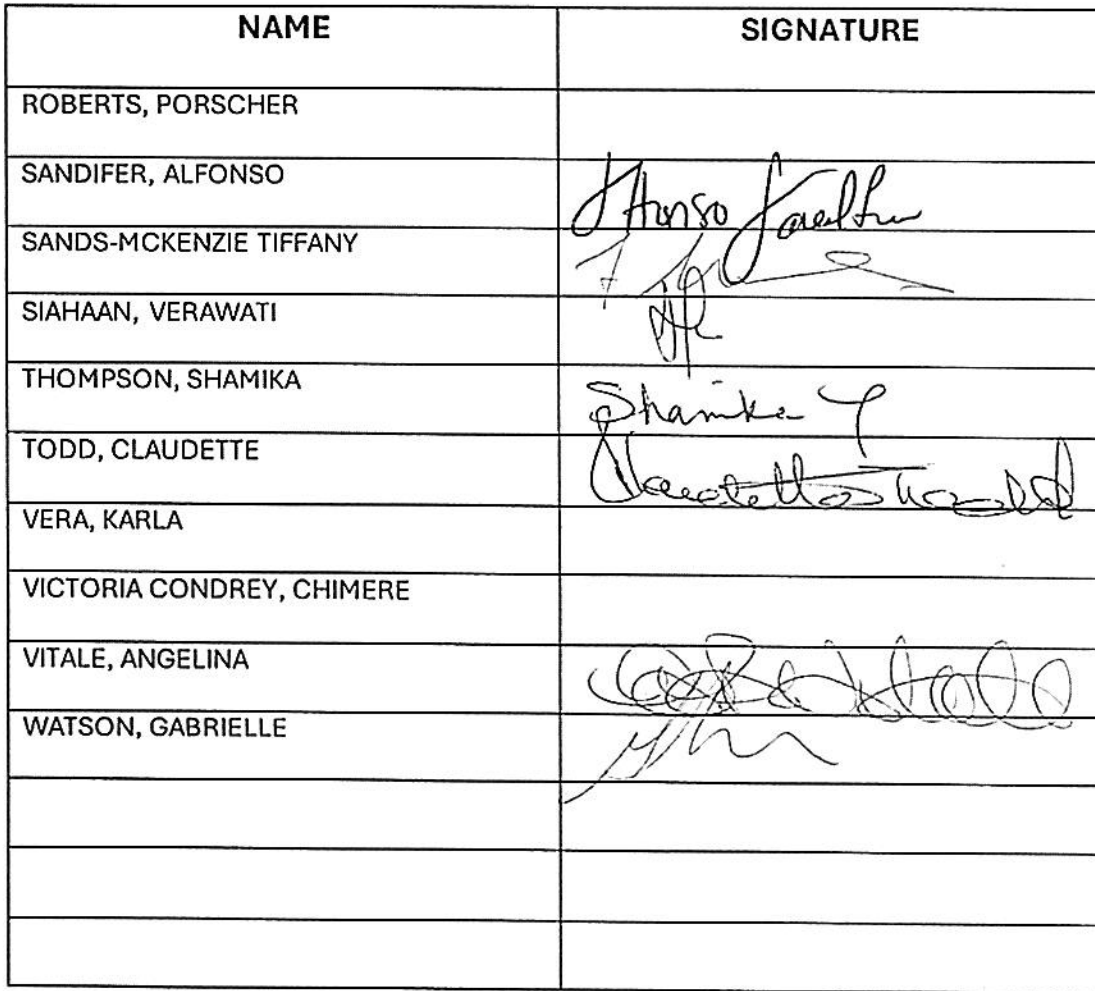 NAME SIGNATURE
ROBERTS, PORSCHER
SANDIFER, ALFONSO Alfonso
SANDS-MCKENZIE TIFFANY
SIAHAAN, VERAWATI
THOMPSON, SHAMIKA Shamika T
TODD, CLAUDETTE Claudette Todd
VERA, KARLA
VICTORIA CONDREY, CHIMERE
VITALE, ANGELINA
WATSON, GABRIELLE